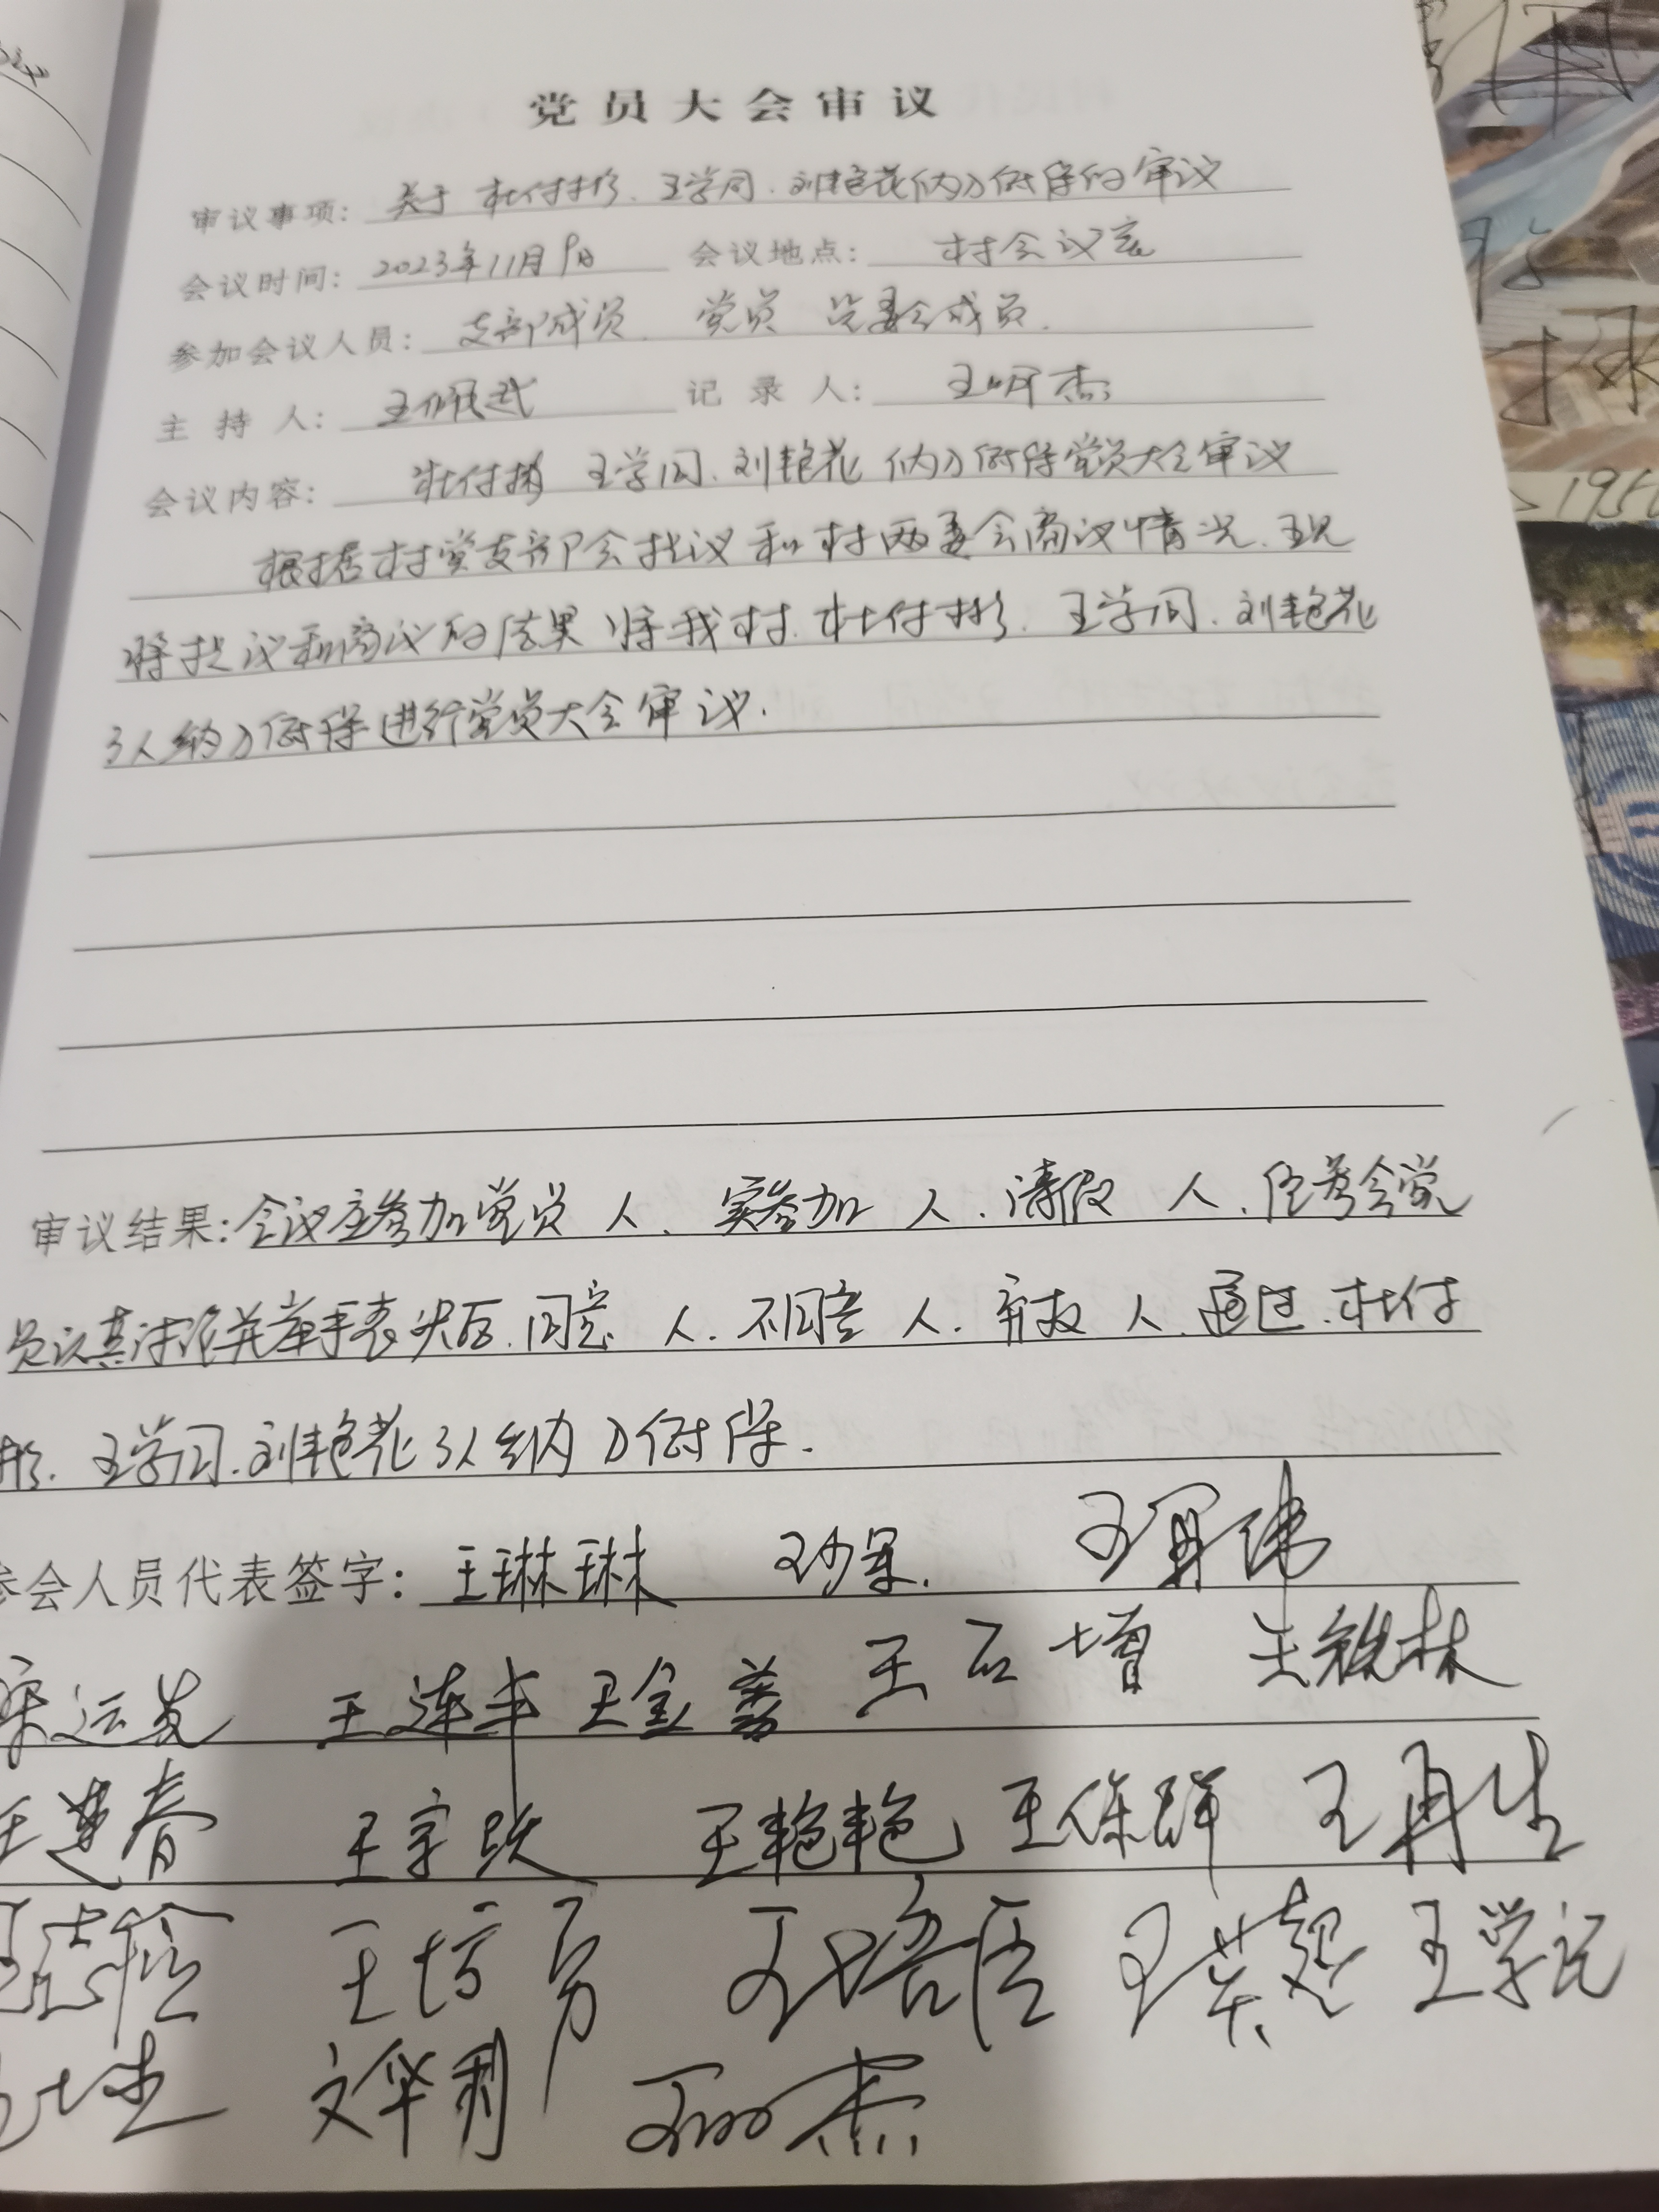 党员大会审议
审议事项：关于杜付彬、王学同、刘艳花纳入低保的审议
会议时间：2023年11月9日 会议地点：村会议室
参加会议人员：支部成员、党员 监委会成员.
主持人： 记录人：王明杰
会议内容：杜付彬 王学同、刘艳花 纳入低保党员大会审议
根据村党支部会提议和村两委会商议情况、现
将提议和商议的结果 将我村、杜付彬、王学同、刘艳花
3人纳入低保进行党员大会审议.
审议结果：会议应参加党员 人、实参加 人、请假 人、经参会党
员认真讨论并举手表决后、同意 人、不同意 人、弃权 人、通过、杜付
彬、王学同、刘艳花3人纳入低保.
参会人员代表签字：王琳琳 王再伟
宋运发 王连丰 王金善 王石增 王铁林
王建春 王艳艳 王保群 王再生
王学记
文华利